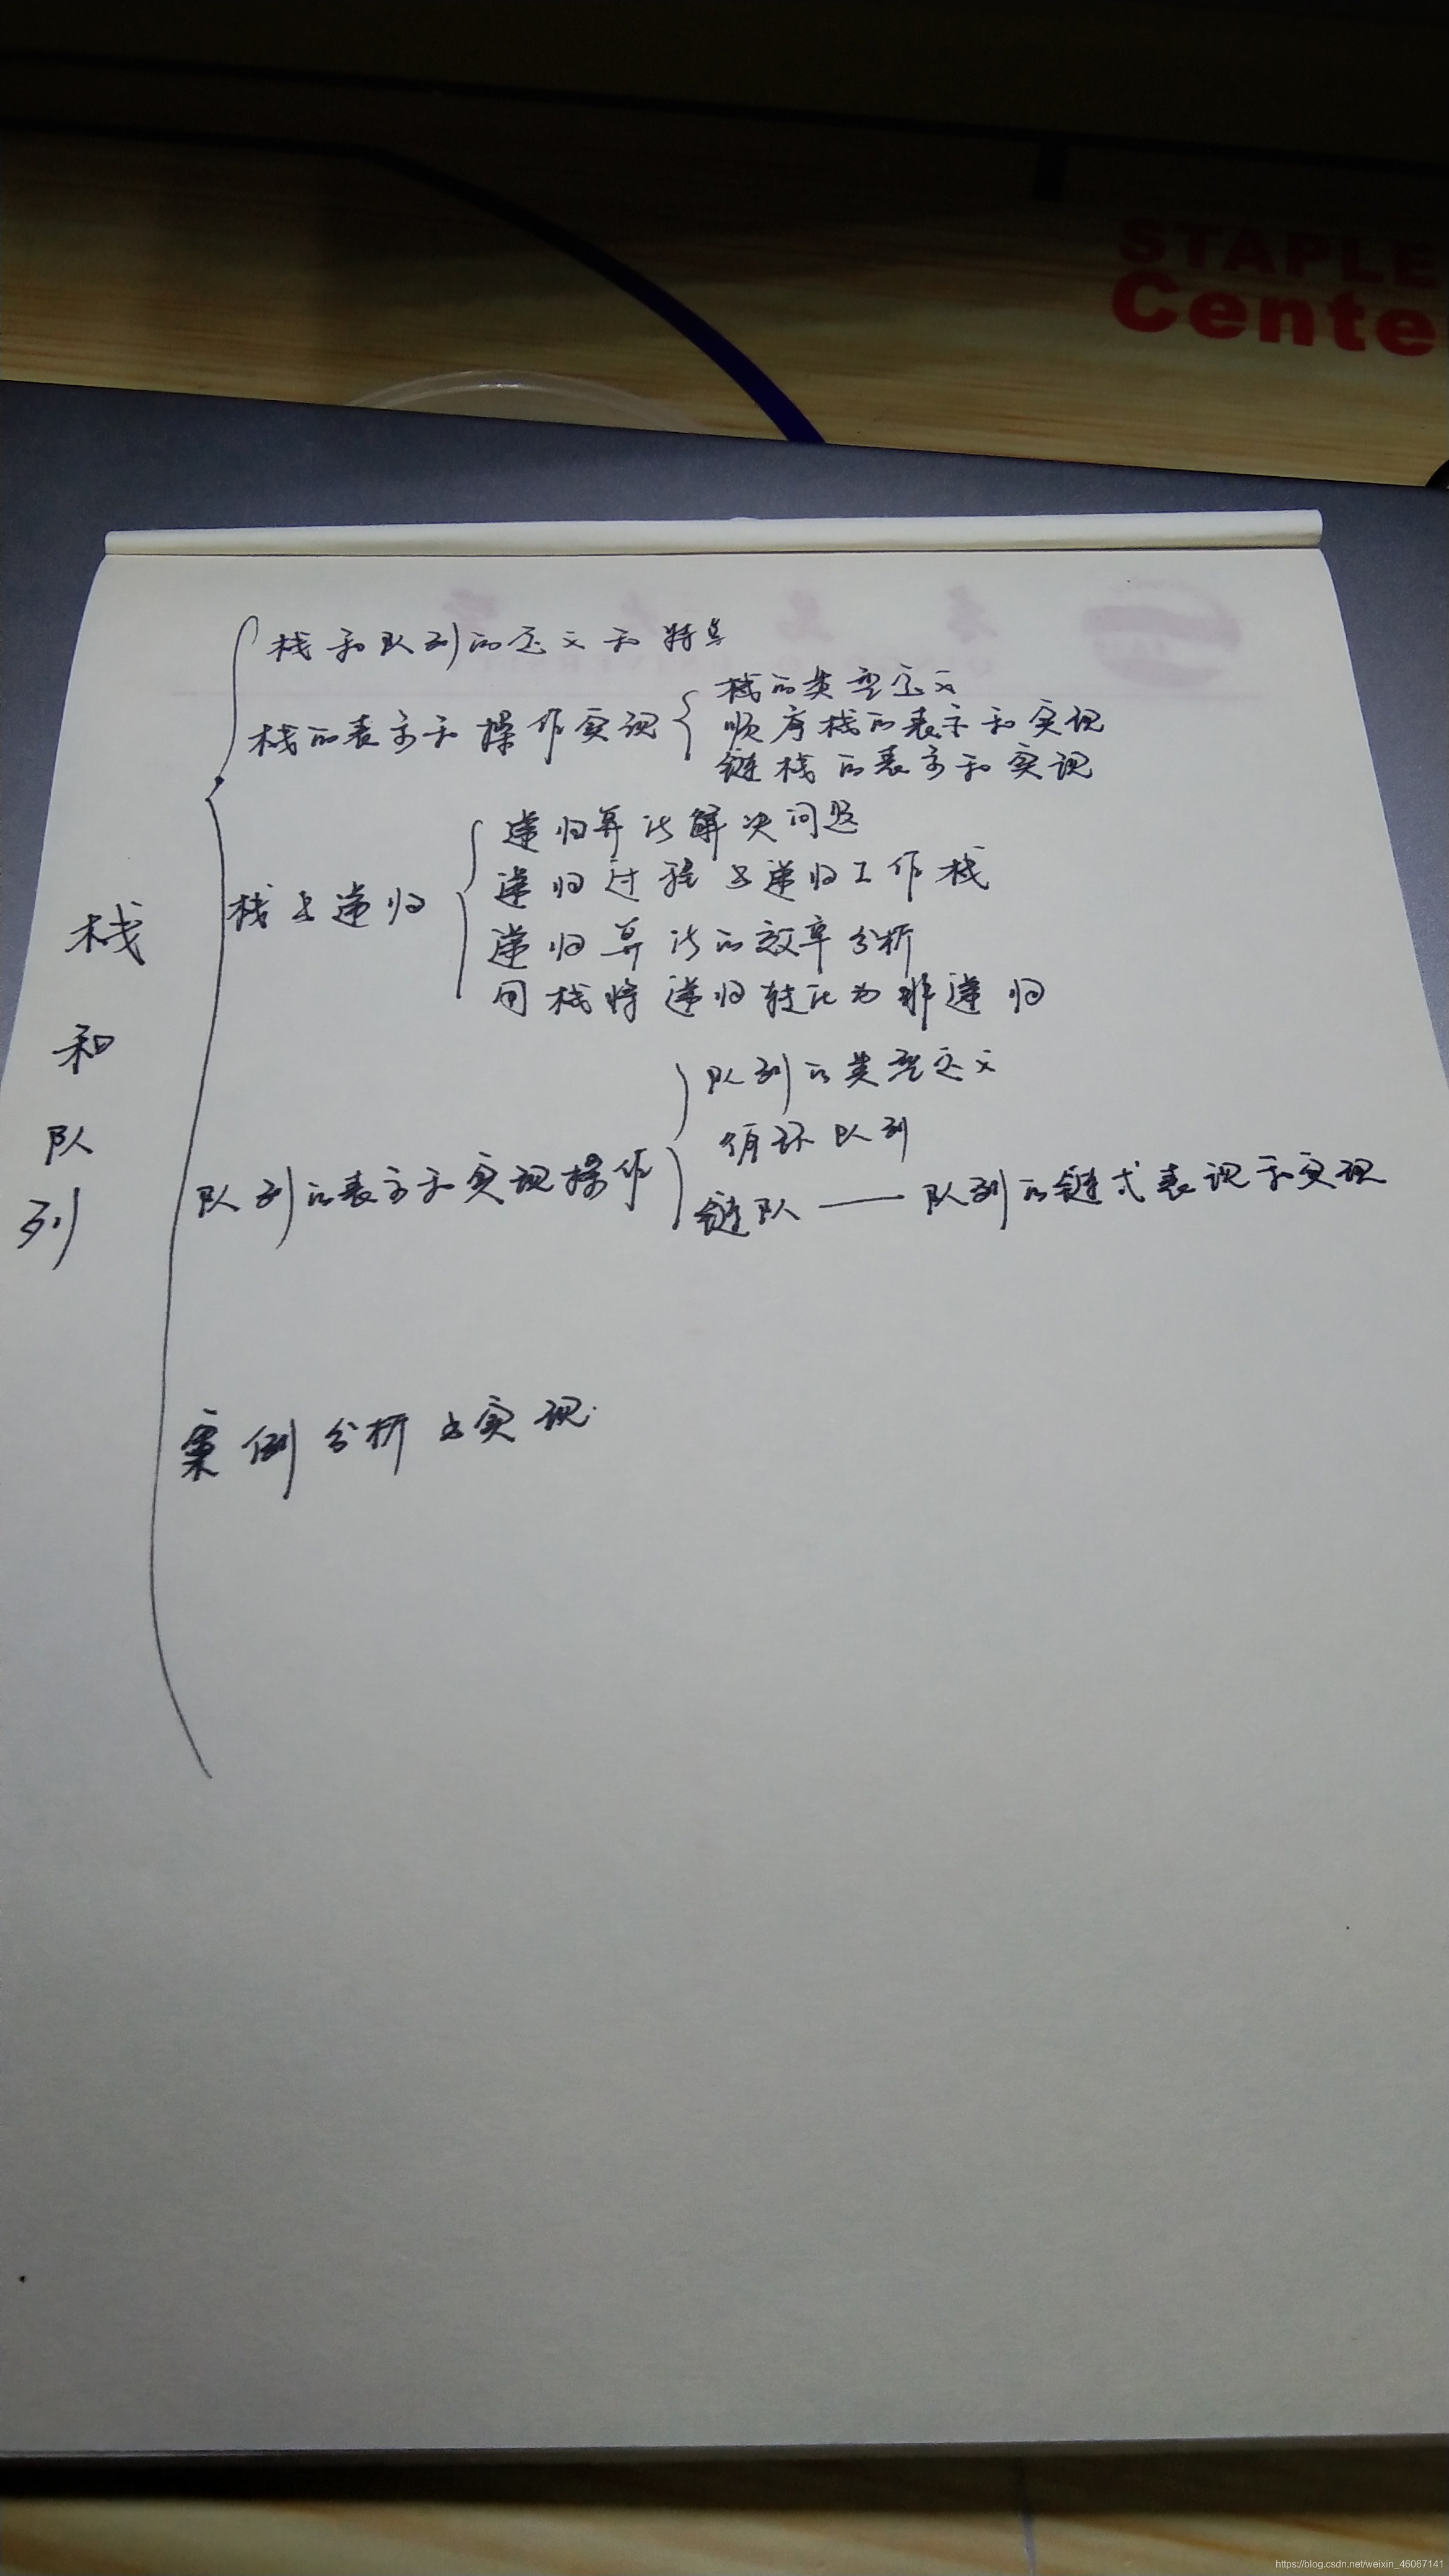 STAPLE
Cente
栈和队列的定义和特点
栈的表示和操作实现
栈的类型定义
顺序栈的表示和实现
链栈的表示和实现
栈与递归
递归算法解决问题
递归过程与递归工作栈
递归算法的效率分析
用栈将递归转化为非递归
栈和队列
队列的表示和实现操作
队列的类型定义
循环队列
链队——队列的链式表现和实现
案例分析与实现.
https://blog.csdn.net/weixin_46067141